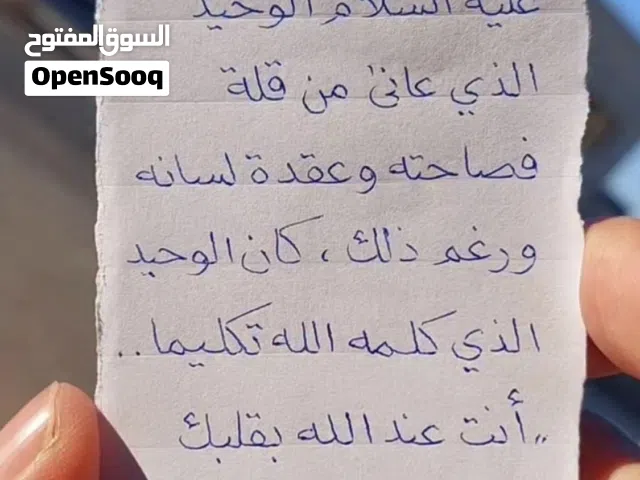 السوق المفتوح
OpenSooq
عليه السلام الوحيد
الذي عانىٰ من قلة
فصاحته وعقدة لسانه
ورغم ذلك ، كان الوحيد
الذي كلمه الله تكليما ..
,, أنت عند الله بقلبك